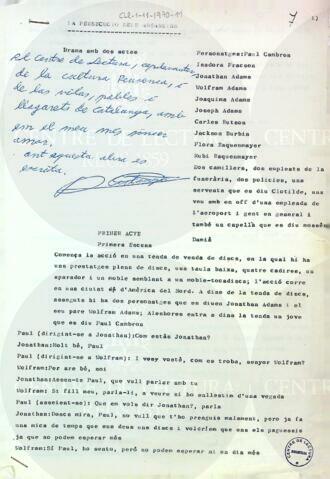 CLR-1-11-1970-11
LA PERSECUCIÓ DELS
Drama amb dos actes
Personatges:Paul Cambron
Isadora Fracsen
Jonathan Adams
Wolfram Adams
Joaquima Adams
Joseph Adams
Carles Hutson
Jackson Burbin
Flora Esquenmayer
Rubi Esquenmayer
Dos camillers, dos empleats de la
funerària, dos policies, una
serventa que es diu Clotilde, una
veu amb en off d'una empleada de
l'aeroport i gent en general i
també un capellà que es diu mossèn
Damià
Al Centre de Lectura,
de la cultura Reusenca, i
de les viles, pobles i
llogarets de Catalunya, amb
em el meu més sincer
amor,
ant aquesta obra es
escrita.
PRIMER ACTE
Primera Escena
Comença la acció en una tenda de venda de discs, en la qual hi ha
uns prestatges plens de discs, una taula baixa, quatre cadires, un
aparador i un moble semblant a un moble-tocadiscs; l'acció corre
en una ciutat d'Amèrica del Nord. A dins de la tenda de discs,
asseguts hi ha dos personatges que es diuen Jonathan Adams i el
seu pare Wolfram Adams; Aleshores entra a dins la tenda un jove
que es diu Paul Cambron
Paul (dirigint-se a Jonathan):Com estàs Jonathan?
Jonathan:Molt bé, Paul
Paul (dirigint-se a Wolfram): I vostè, com es troba, senyor Wolfram?
Wolfram:Per are bé, noi
Jonathan:Asseu-te Paul, que vull parlar amb tu
Wolfram: Si fill meu, parla-li, a veure si ho enllestim d'una vegada
Paul (asseient-se): Que em vols dir Jonathan?, parla
Jonathan:Doncs mira, Paul, no vull que t'ho prenguis malament, però ja fa
una mica de temps que ens deus uns discs i voldríem que ens els paguessis
ja que no podem esperar més
Wolfram:Sí Paul, ho sento, però no podem esperar ni un dia més
CENTRE DE LECTURA